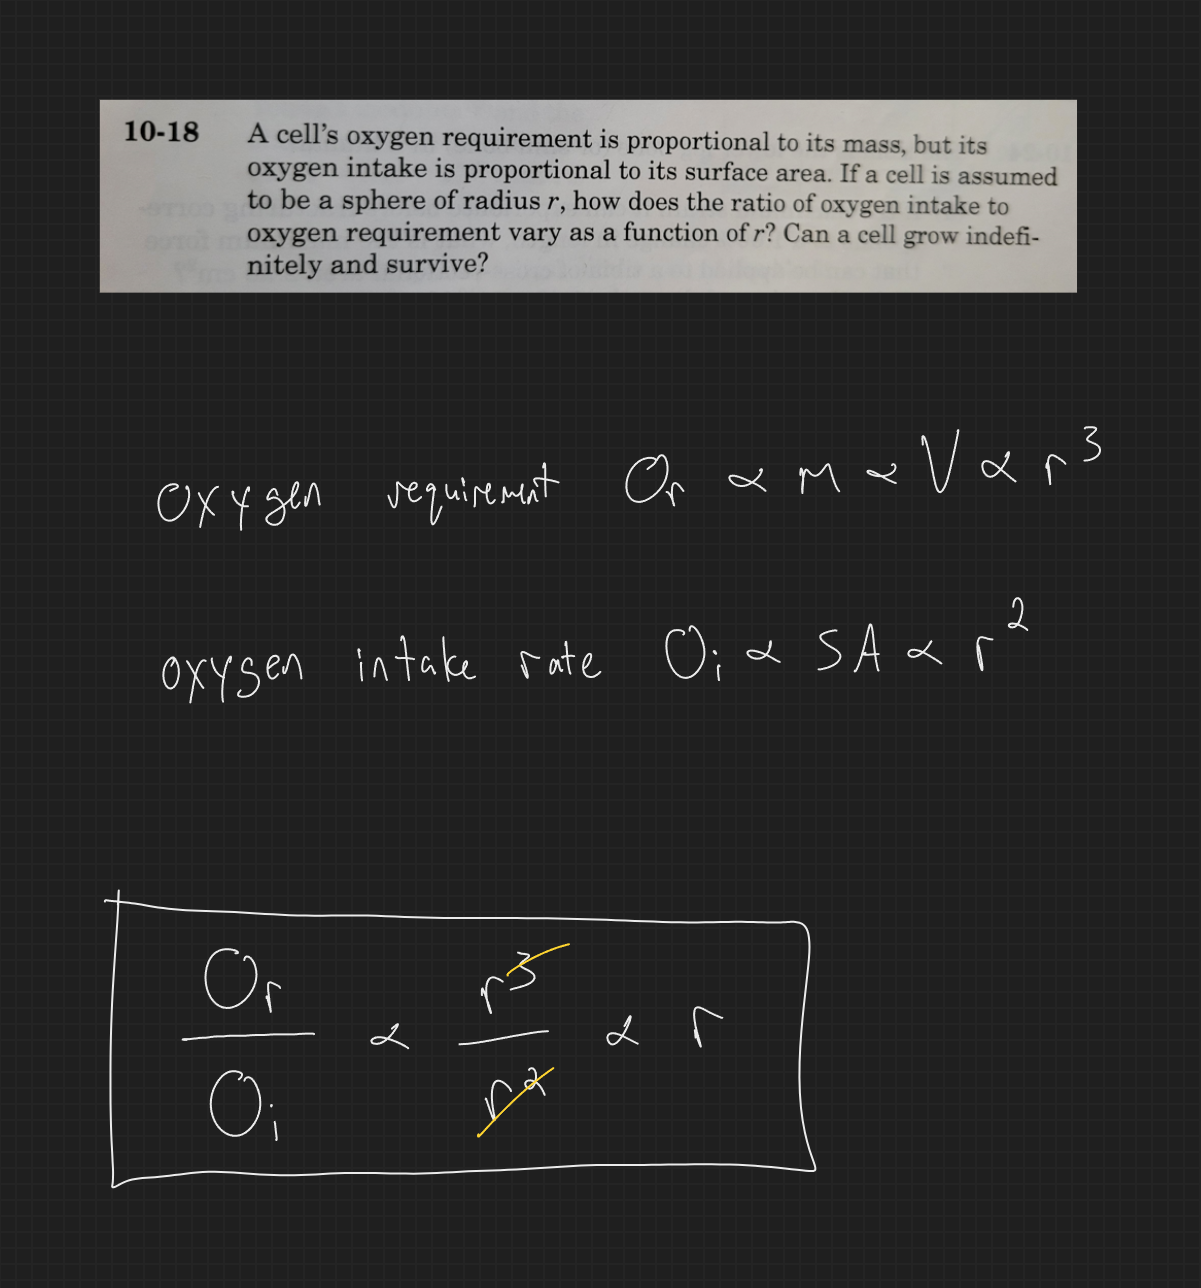 10-18 A cell's oxygen requirement is proportional to its mass, but its
oxygen intake is proportional to its surface area. If a cell is assumed
to be a sphere of radius r, how does the ratio of oxygen intake to
oxygen requirement vary as a function of r? Can a cell grow indefi-
nitely and survive?
oxygen requirement Oᵣ ∝ m ∝ V ∝ r³
oxygen intake rate Oᵢ ∝ SA ∝ r²
Oᵣ/Oᵢ ∝ r³/r² ∝ r